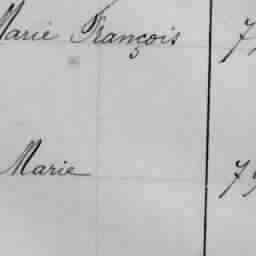 Marie François 7
Marie 79